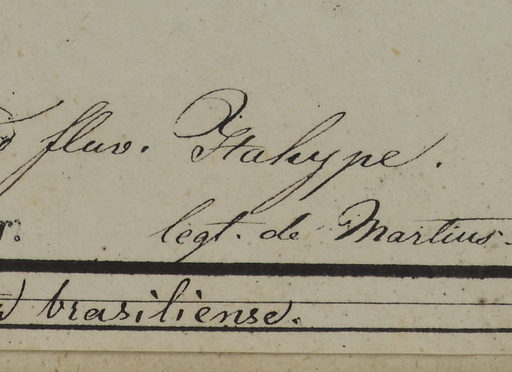 fluv. Itahype.
legt. de Martius.
brasiliense.